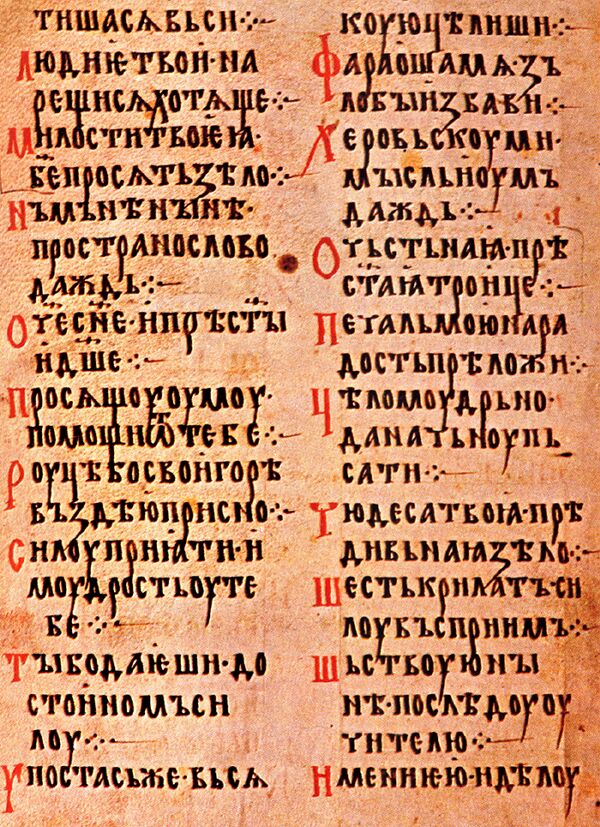 тишасѧвьси⁘
людиѥтвои·на
рещисѧхотѧще⁘
милоститвоѥꙗ·
б҃епросѧтьзѣло⁘
нъмънѣнꙑнѣ·
пространослово
даждь⁘
оч҃ес҃не·ипрѣст҃ꙑ
ид҃ше⁘
просѧщоуоумоу·
помощиѿтебе⁘
роуцѣбосвоигорѣ
въздѣюприсно⁘
силоуприꙗти·и
моудростьоуте
бе⁘
тꙑбодаѥши·до
стоиномъси
лоу⁘
ѵпостасьже·вьсѧ
коуюцѣлиши⁘
фараошамѧ·зъ
лобꙑизбави⁘
херовьскоуми·
мꙑсльиоумъ
даждь⁘
оѹьстьнаꙗ·прѣ
с҃таꙗтроице⁘
печальмоюнара
достьпрѣложи⁘
цѣломоудрьно·
даначьноупь
сати⁘
чюдесатвоꙗ·прѣ
дивьнаꙗзѣло⁘
шестькрилатъ·си
лоувъсприимъ⁘
шьствоуюнꙑ
нѣ·послѣдоуоу
чителю⁘
имениѥю·идѣлоу